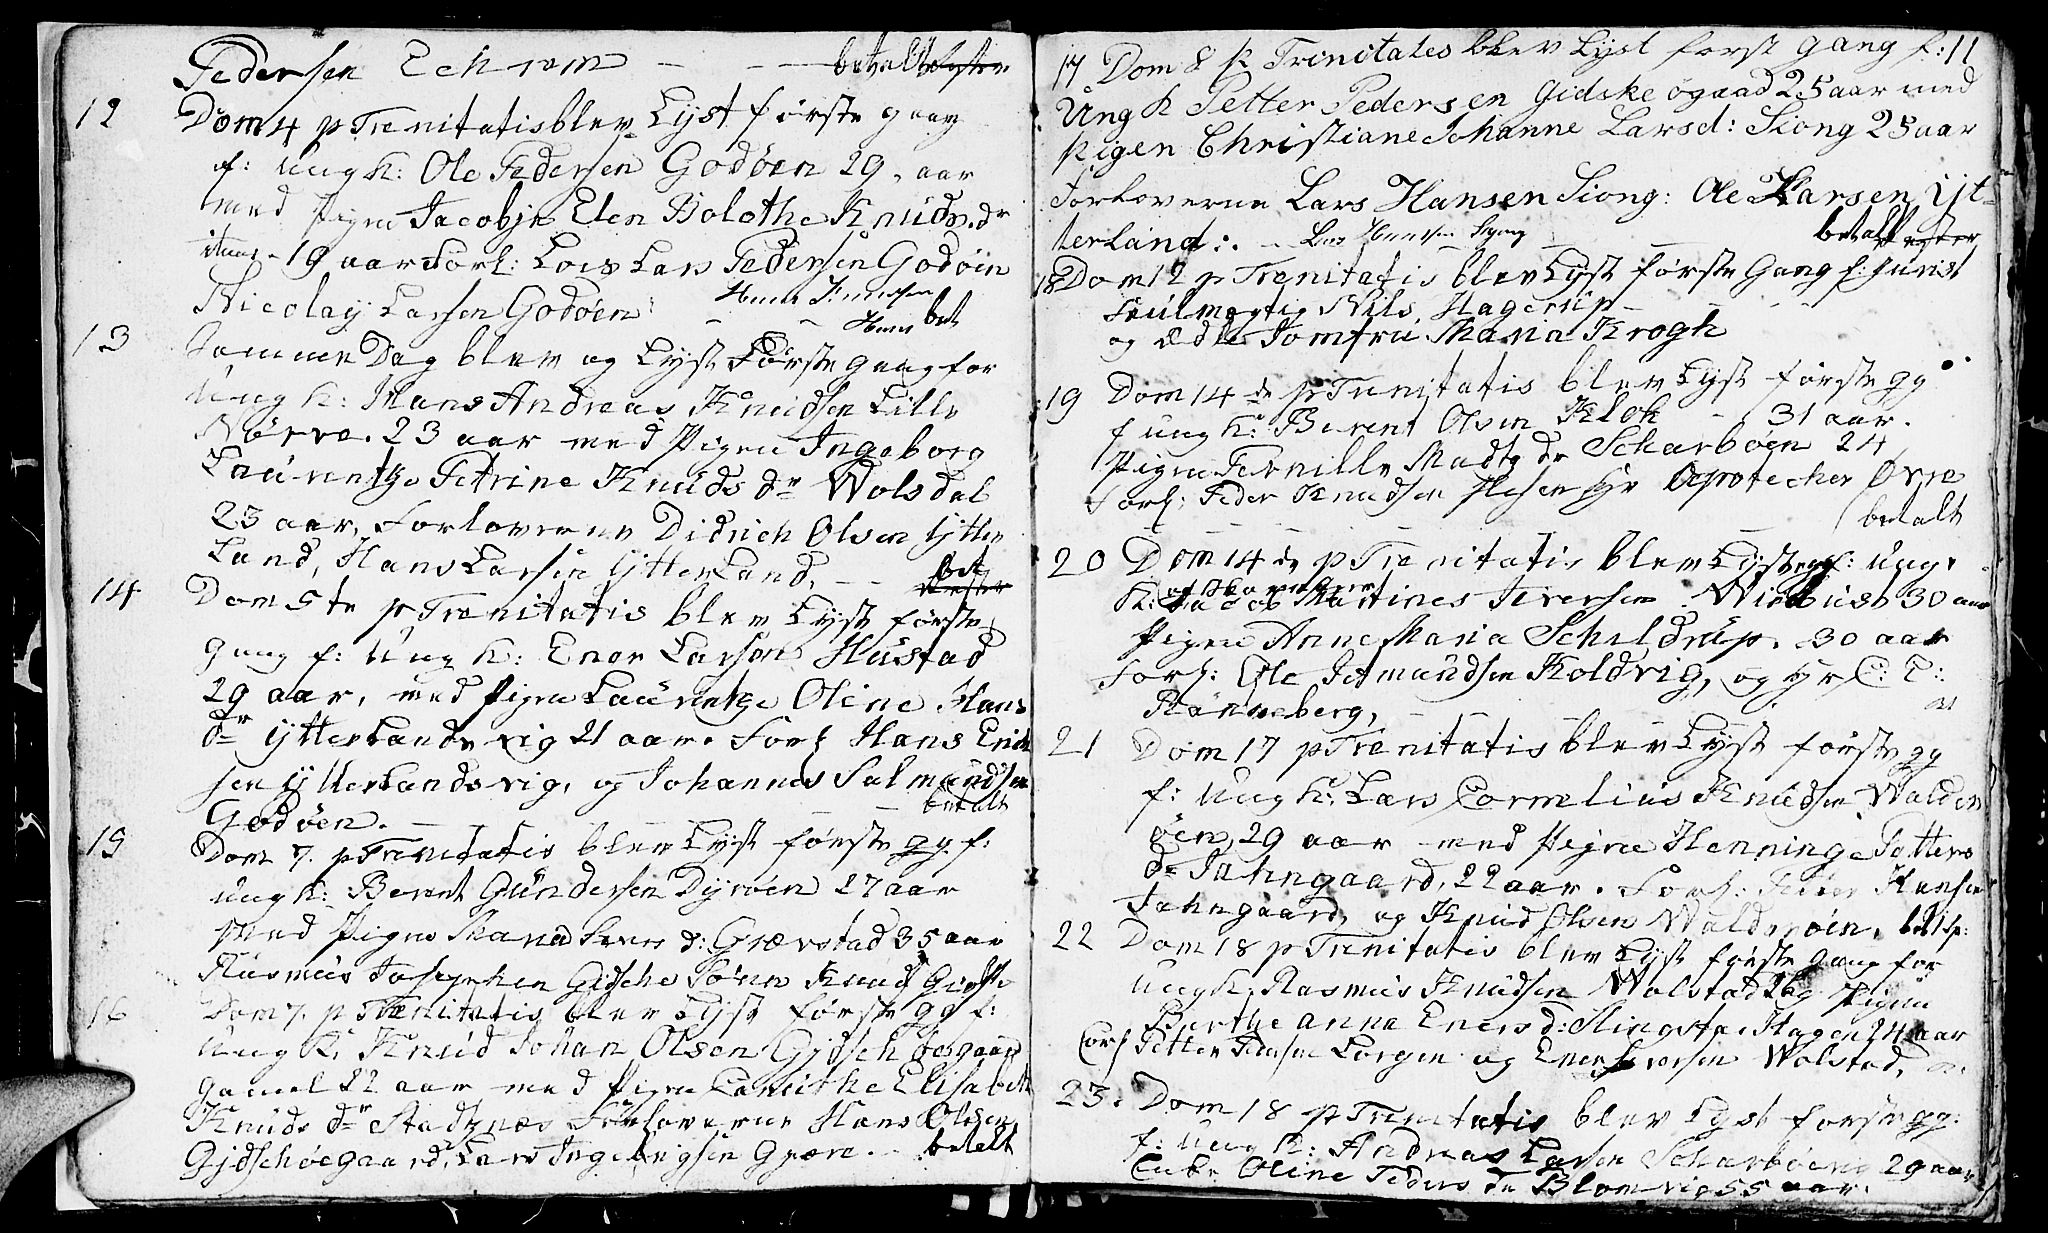 Pedersen Echrem - - betalt
12 Dom 4 p Trenitatis blev Lyst første gang
f: Ung k: Ole Pedersen Godøen 29, aar
med Pigen Jacobje Elen Bolethe Knuds. dr
19 aar Forl: Lars Pedersen Godøin
Nicolay Larsen Godøen: - - bet
13 Samme Dag blev og Lyst Første gang for
Ung k: Hans Andreas Knudsen Lille
Nørve. 23 aar med Pigen Ingeborg
Laurentze Petrine Knuds dr Wolsdal
23 aar, Forloverne Didrich Olsen Ytter
Land, Hans Larsen Ytterland, - - bet
14 Dom 5 te p Trenitatis blev Lyst første
gang f: Ung k: Ener Larsen Hustad
29 aar, med Pigen Laurentze Oline Hans
dr Ytterlands vig 21 aar. Forl Hans Erich
sen Ytterlandsvig, og Johannes Salmundsen
Godøen. - - - betalt
15 Dom 7. p Trenitatis blev Lyst første gg. f:
ung k: Berent Gundersen Dyrøen 27 aar
med Pigen d: Grævstad 35 aar
Rasmus Josephen Gidsche Søren Knuds Gidsche
16 Dom 7. p Trenitatis blev Lyst første gg f:
Ung k: Knud Johan Olsen Gjdschøegaard
gamel 22 aar med Pigen Elisabeth
Knuds dr Stadsnæs Forloverne Hans Olsen
Gjdschøegaard, Lars Gjære. - betalt
17 Dom 8 p Trinitates blev Lyst first gang f: 11
Ung k Petter Pedersen Gidske øgaad 25 aar med
pigen Christiane Johanne Larsd: Siong 25 aar
Forloverne Lars Hansen Siong: Ole Larsen Yt-
terland:. - betalt
18 Dom 12 p Trenitatis blev Lyst første Gang f: Jurist
Fuldmægtig Nils Hagerup -
og ædle Jomfru Maria Krogh
19 Dom 14 de p Trenitatis blev Lyst første gg
f ung k: Berent Olsen Klok - 31 aar.
Pigen Pernille Madtz dr Scharbøen 24
Forl: Peder Knudsen Hr Apotecher Øvre
betalt
20 Dom 14 de p Trenitatis blev Lyst gg f: ung
k: Jacob Martines Iversen 30 aar
Pigen Anne Maria Scheldrup. 30 aar
Forl: Ole Koldvig, og Hr C: T:
Rønneberg,
21 Dom 17 p Trenitatis blev Lyst første gg
f: Ung k: Lars Cornelius Knudsen Walder
øen, 29 aar med Pigen Henninge Petters
dr Jahngaard, 22 aar. Forl: Petter Hansen
Jahngaard, og Knud Olsen Walderøen,
22 Dom 18 p Trenitatis blev Lyst første gang for
Ung k: Rasmus Knudsen Wolstad 26 Pigen
Berthe Anna Eners d: Hagen 24 aar
Forl Petter og Ener Iversen Wolstad,
23. Dom 18 p Trenitatis blev Lyst første gg:
f: ung k: Andreas Larsen Scharbøen 29 aar
Enke Oline Peders dr Blomvig 55 aar.